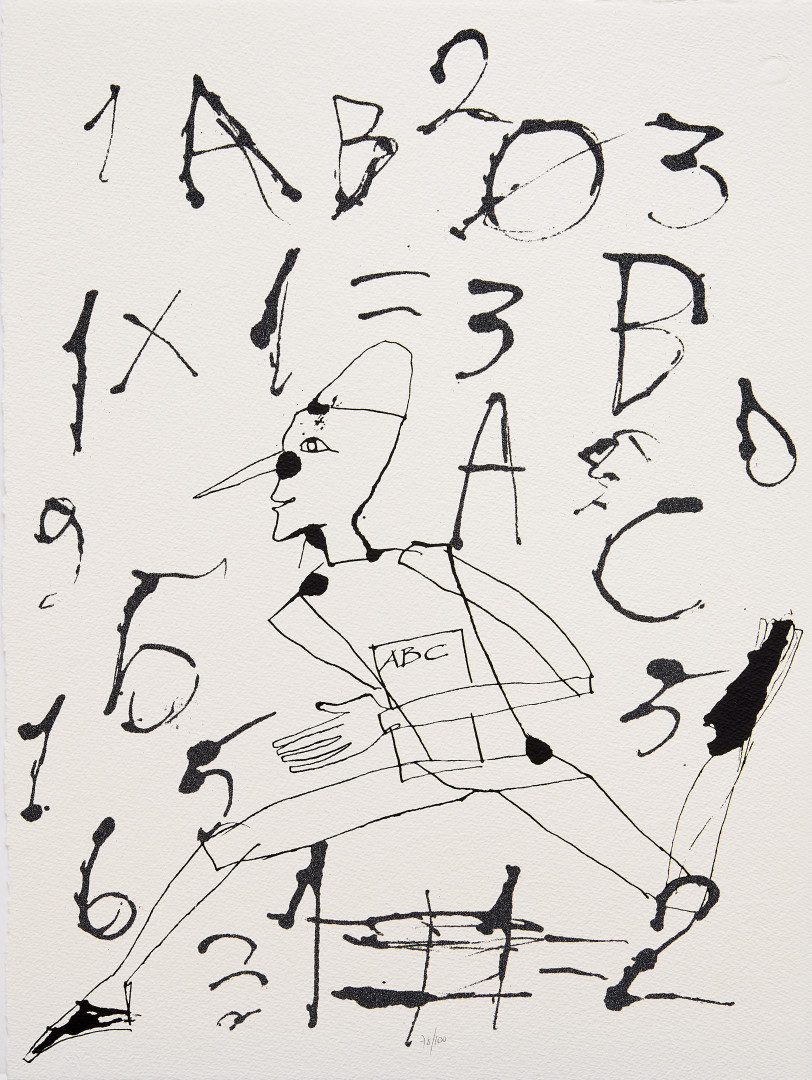 1 A B 2 0 3
1 x 1 = 3 B
A 0
9 C
5
ABC
1 5 3
6
3 1 1 = 2
73/100